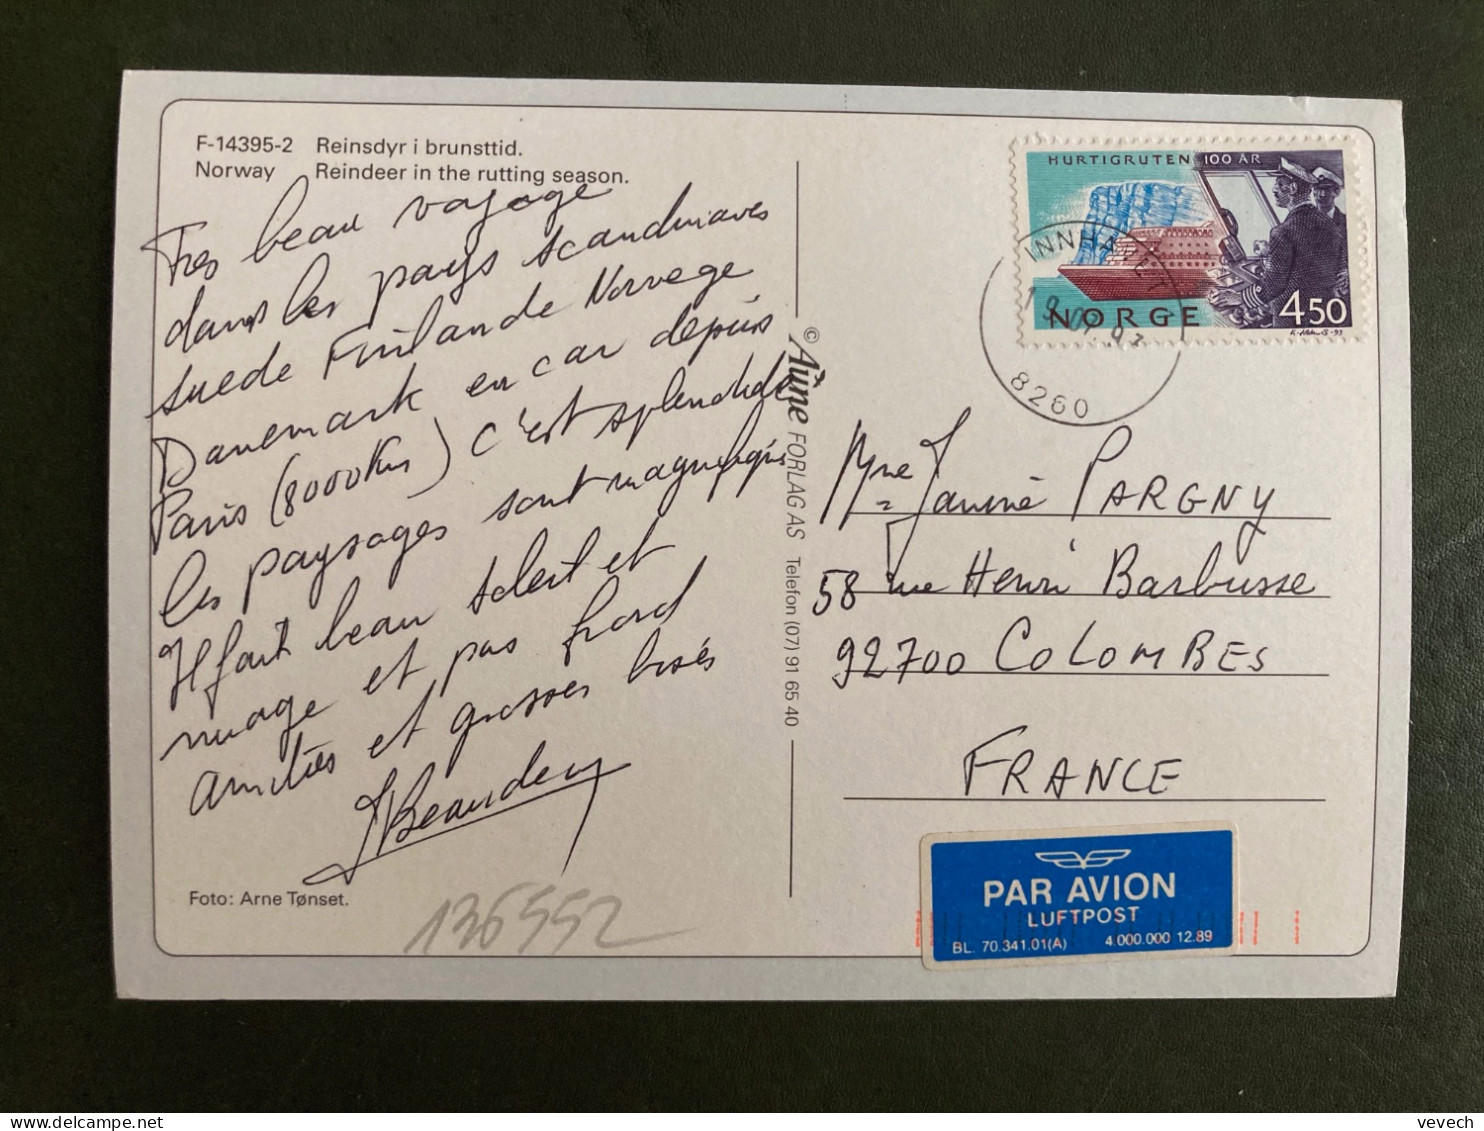 F-14395-2 Reinsdyr i brunsttid.
Norway Reindeer in the rutting season.
Tres beau voyage
dans les pays scandinaves
suede Finlande Norvege
Danemark en car depuis
Paris (8000 km) c'est splendide
les paysages sont magnifiques
Il fait beau soleil et
nuage et pas froid
amitiés et grosses bisés
Foto: Arne Tønset.
136552
© Aune FORLAG AS Telefon (07) 91 65 40
HURTIGRUTEN 100 ÅR
NORGE 450
INNHAVET
8260
Mme Janine PARGNY
58 rue Henri Barbusse
92700 COLOMBES
FRANCE
PAR AVION
LUFTPOST
BL. 70.341.01(A) 4.000.000 12.89
vevech